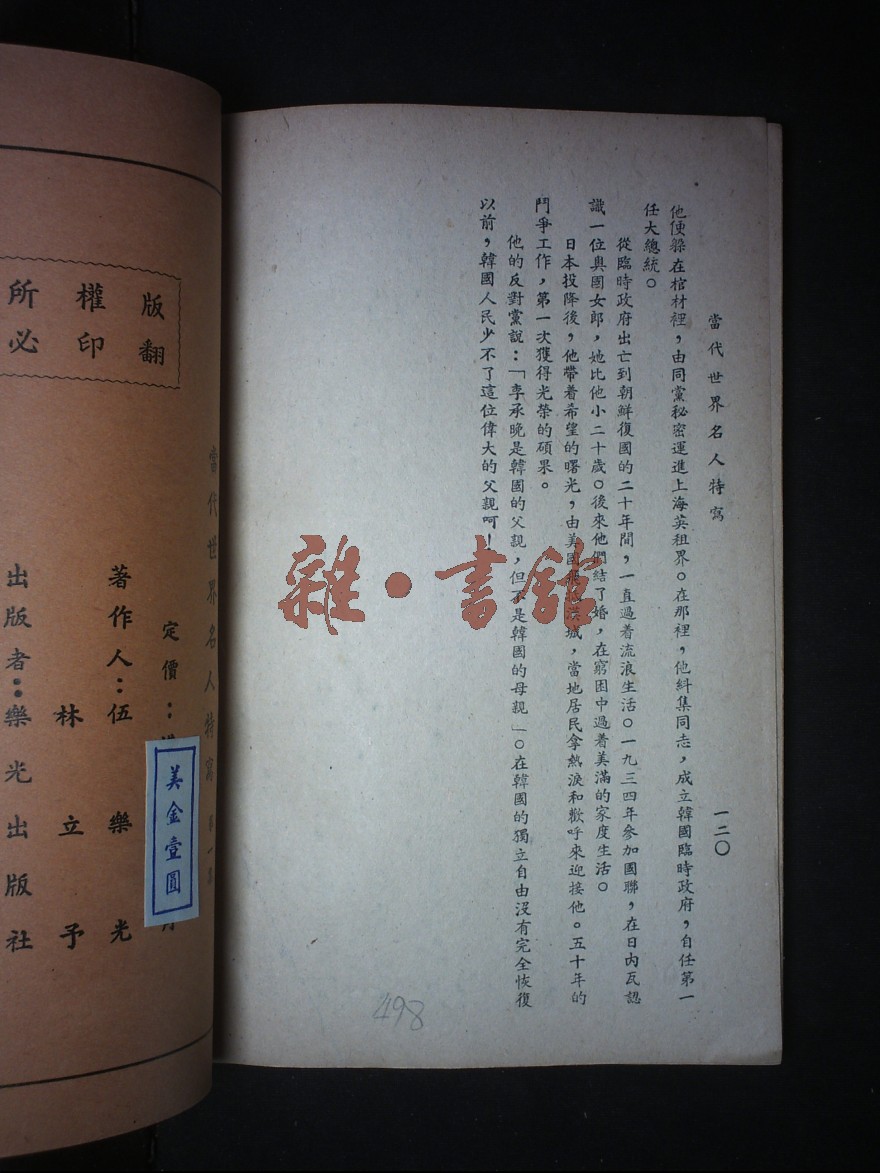 當代世界名人特寫
一二〇
他便躲在棺材裡，由同黨秘密運進上海英租界。在那裡，他糾集同志，成立韓國臨時政府，自任第一
任大總統。
從臨時政府出亡到朝鮮復國的二十年間，一直過着流浪生活。一九三四年參加國聯，在日內瓦認
識一位奧國女郎，她比他小二十歲。後來他們結了婚，在窮困中過着美滿的家度生活。
日本投降後，他帶着希望的曙光，由美國飛返漢城，當地居民拿熱淚和歡呼來迎接他。五十年的
鬥爭工作，第一次獲得光榮的碩果。
他的反對黨說：「李承晚是韓國的父親，但不是韓國的母親」。在韓國的獨立自由沒有完全恢復
以前，韓國人民少不了這位偉大的父親呵！
雜·書館
498
當代世界名人特寫 第一集
版權所
翻印必
定價：
美金壹圓
著作人：伍樂光
林立予
出版者：樂光出版社